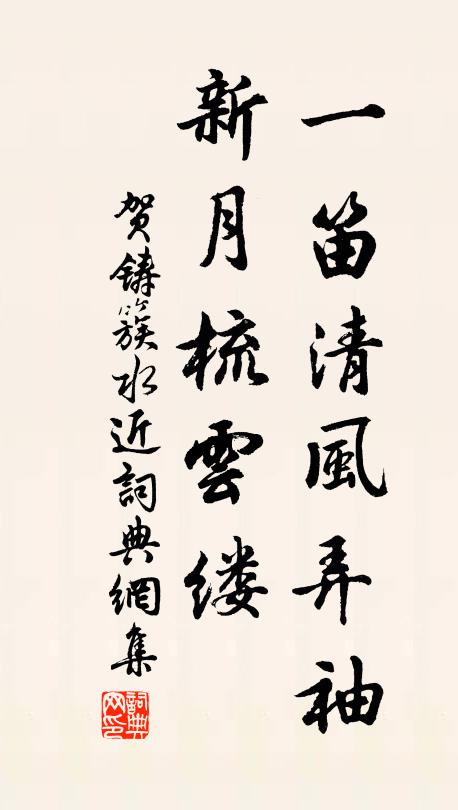 一笛清風弄袖
新月梳雲缕
贺鑄簇水近詞典網集
詞典網印